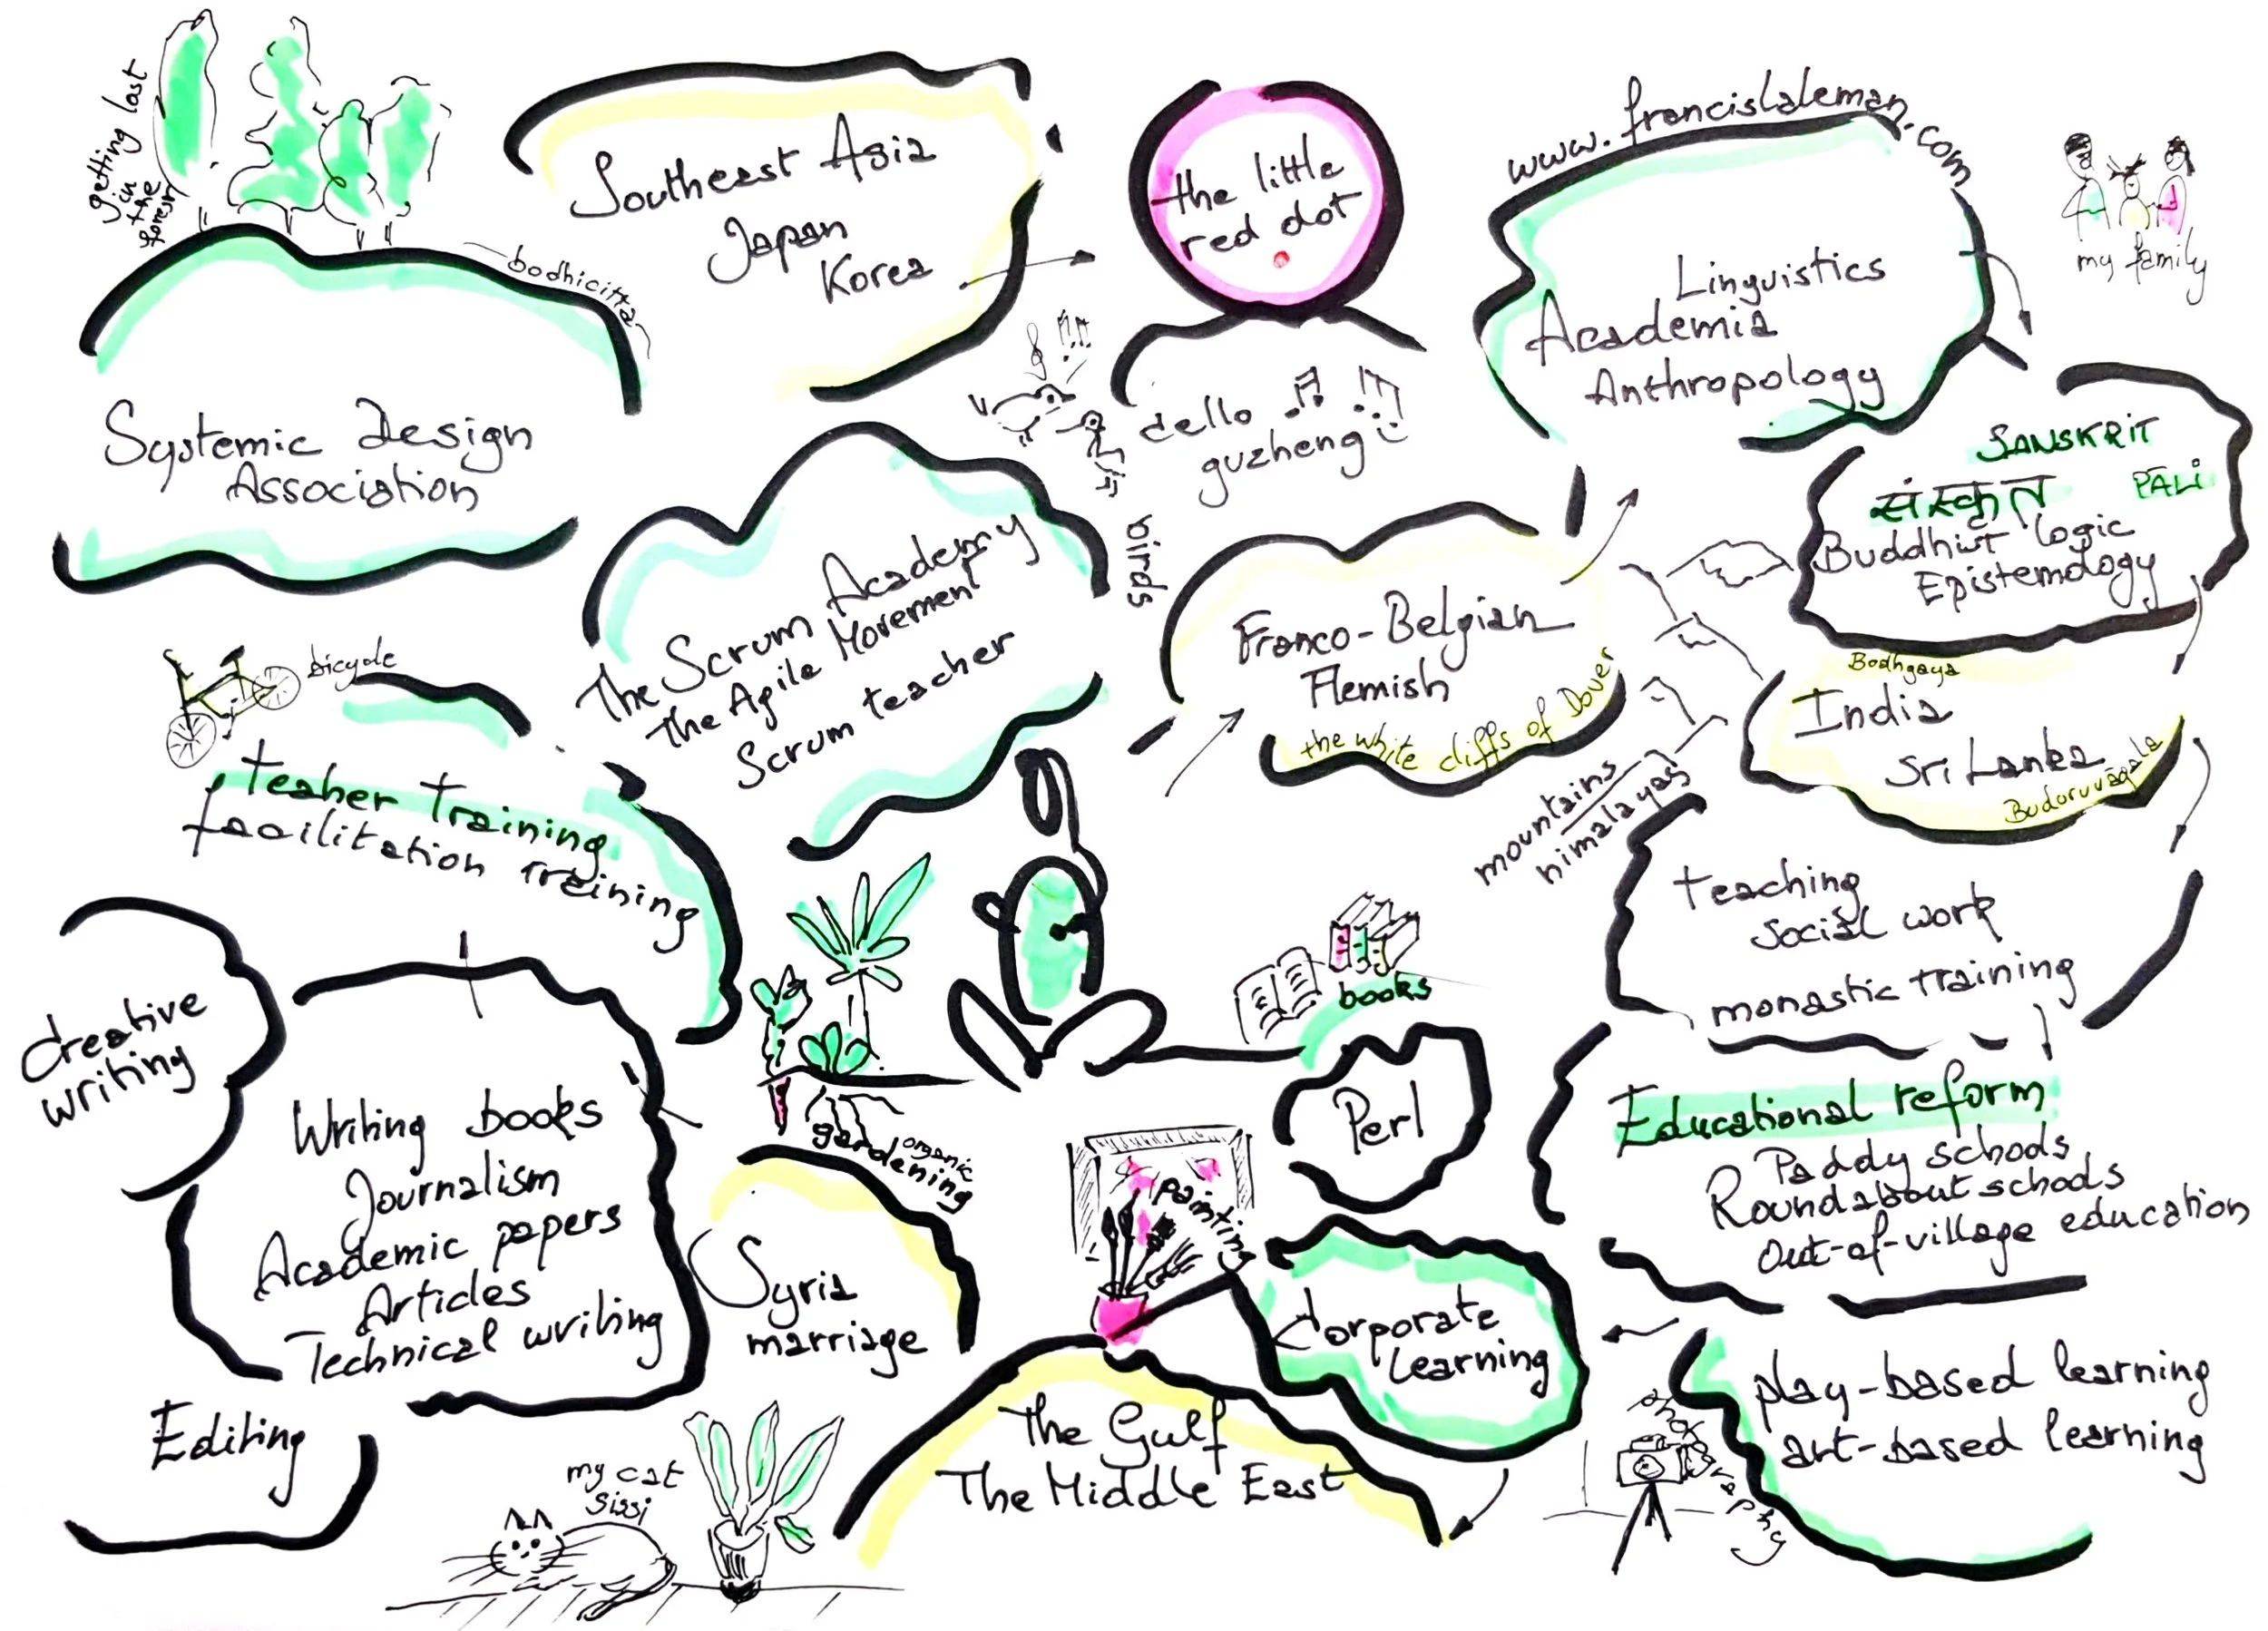 getting lost
in
the
forest
Southeast Asia
Japan
Korea
the little
red dot
www.francislaleman.com
my family
bodhicitta
Linguistics
Academia
Anthropology
Systemic Design
Association
cello
guzheng
birds
SANSKRIT
संस्कृत
PĀLi
Buddhist logic
Epistemology
The Scrum Academy
The Agile Movement
Scrum teacher
Franco-Belgian
Flemish
the white cliffs of Dover
Bodhgaya
India
Sri Lanka
Buduruvagala
mountains
himalayas
bicycle
teaher training
facilitation training
teaching
social work
monastic training
books
creative
writing
Writing books
Journalism
Academic papers
Articles
Technical writing
Editing
organic
gardening
Perl
Educational reform
Paddy schools
Roundabout schools
out-of-village education
painting
Syria
marriage
Corporate
Learning
The Gulf
The Middle East
play-based learning
art-based learning
photography
my cat
sissi